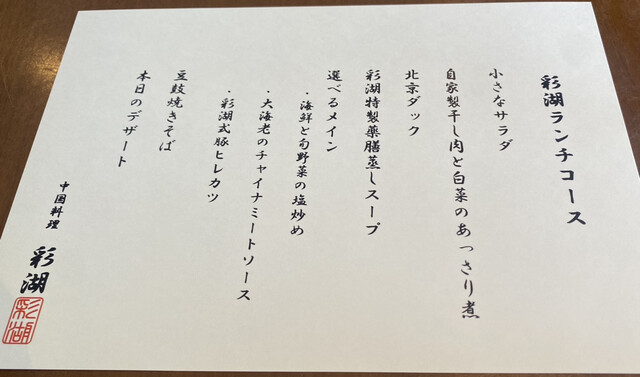 彩湖ランチコース
小さなサラダ
自家製干し肉と白菜のあっさり煮
北京ダック
彩湖特製薬膳蒸しスープ
選べるメイン
・海鮮と旬野菜の塩炒め
・大海老のチャイナミートソース
・彩湖式豚ヒレカツ
豆鼓焼きそば
本日のデザート
中国料理 彩湖
彩湖